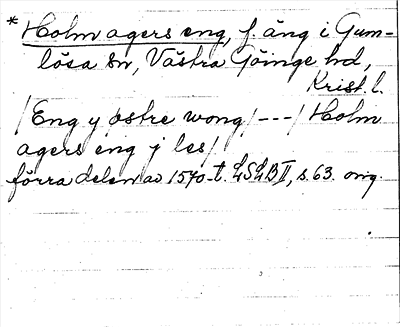 * Holm agers eng, f. äng i Gum-
lösa sn, Västra Göinge hd,
Krist. l.
/Eng y østre wong/---/Holm
agers eng j les/
förra delen av 1570-t. LSLB II, s. 63. orig.